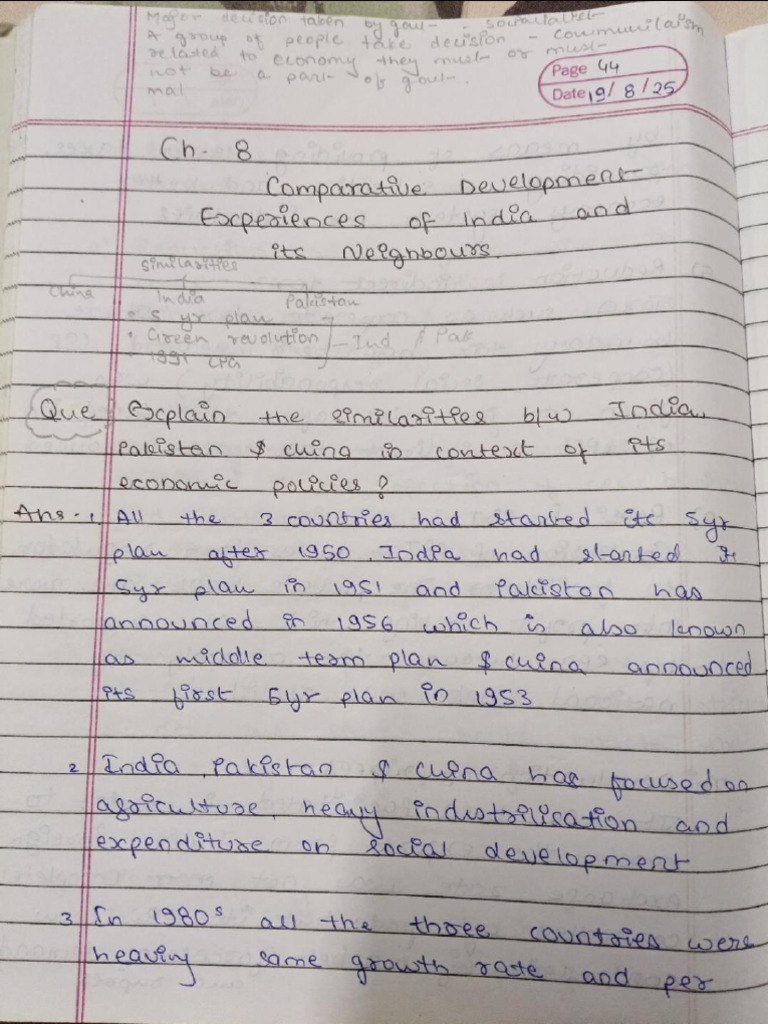 Major decision taken by gout - socialist
A group of people take decision - communilaism
related to economy they must or must
not be a part of gout.
mal
Page 44
Date 19/8/25
Ch. 8
Comparative Development
Experiences of India and
its Neighbours.
similarities
China India Pakistan
• 5 yr plan
• Green revolution - Ind & Pak
• 1991 LPG
Que Explain the similarities b/w India,
Pakistan & China in context of its
economic policies?
Ans - 1 All the 3 countries had started its 5yr
plan after 1950. India had started it
5yr plan in 1951 and Pakistan has
announced in 1956 which is also known
as middle term plan & China announced
its first 5yr plan in 1953
2 India, Pakistan & China has focused on
agriculture, heavy industrilisation and
expenditure on social development
3 In 1980s all the three countries were
heaving same growth rate and per